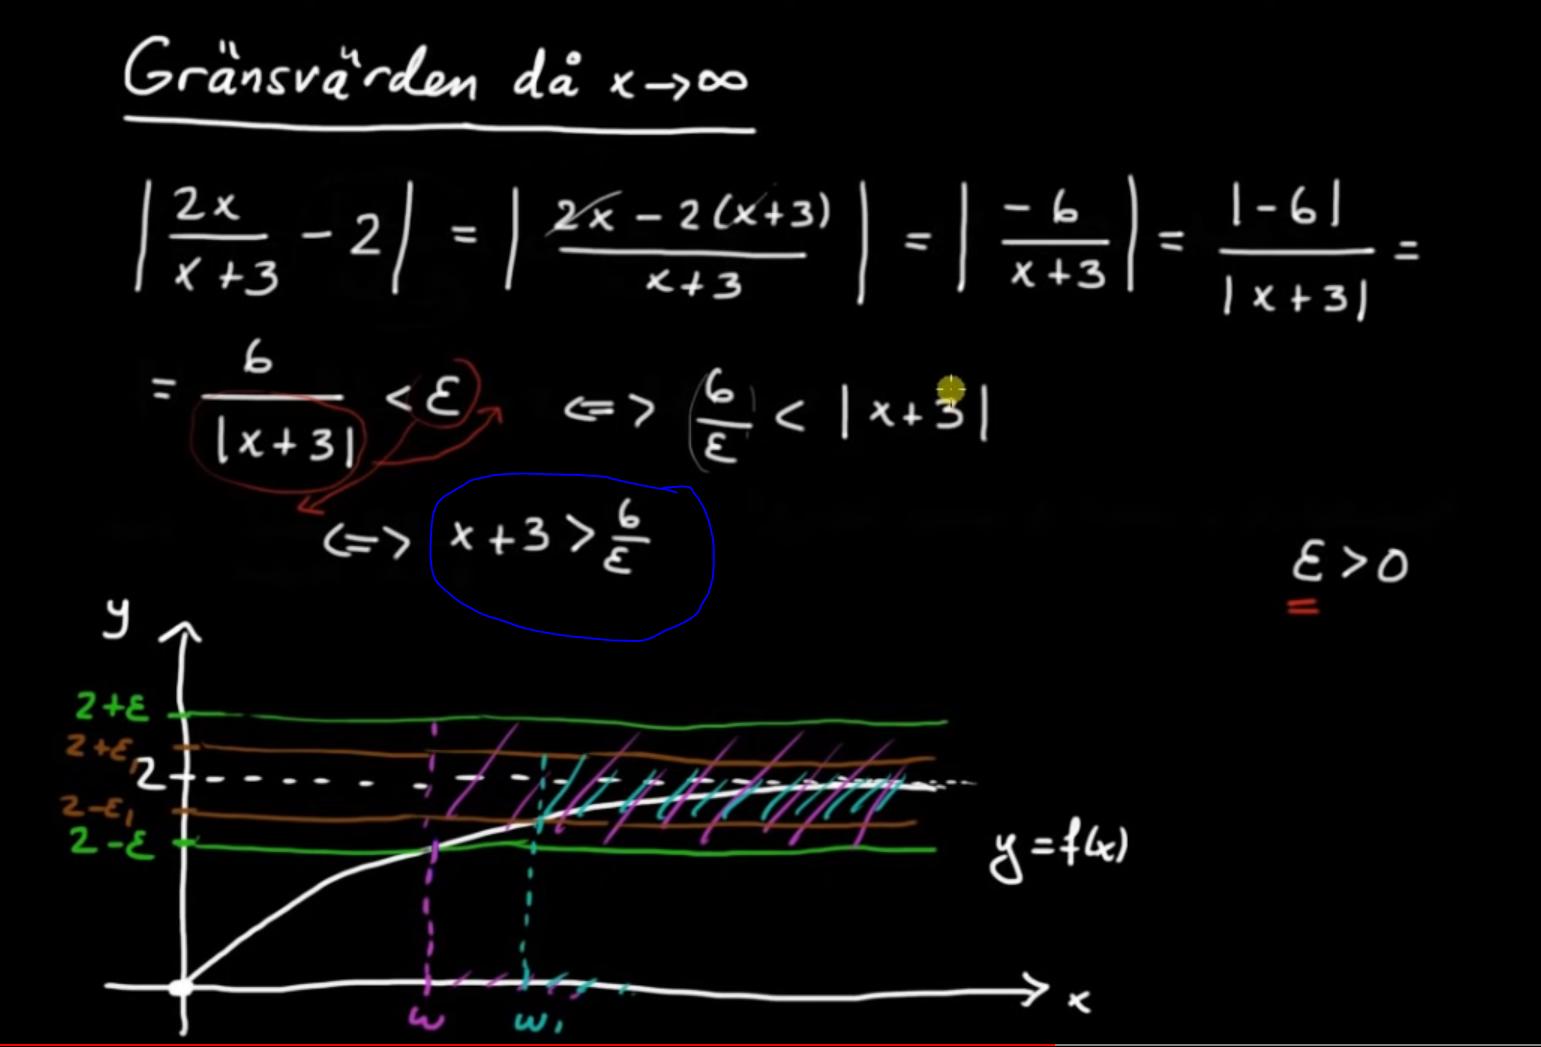 Gränsvärden då x→∞
| 2x/(x+3) − 2 | = | (2x − 2(x+3))/(x+3) | = | −6/(x+3) | = |−6|/|x+3| =
= 6/|x+3| < ε ⇔ 6/ε < |x+3|
⇔ x+3 > 6/ε
ε > 0
y
2+ε
2+ε₁
2
2−ε₁
2−ε
y = f(x)
x
ω
ω₁